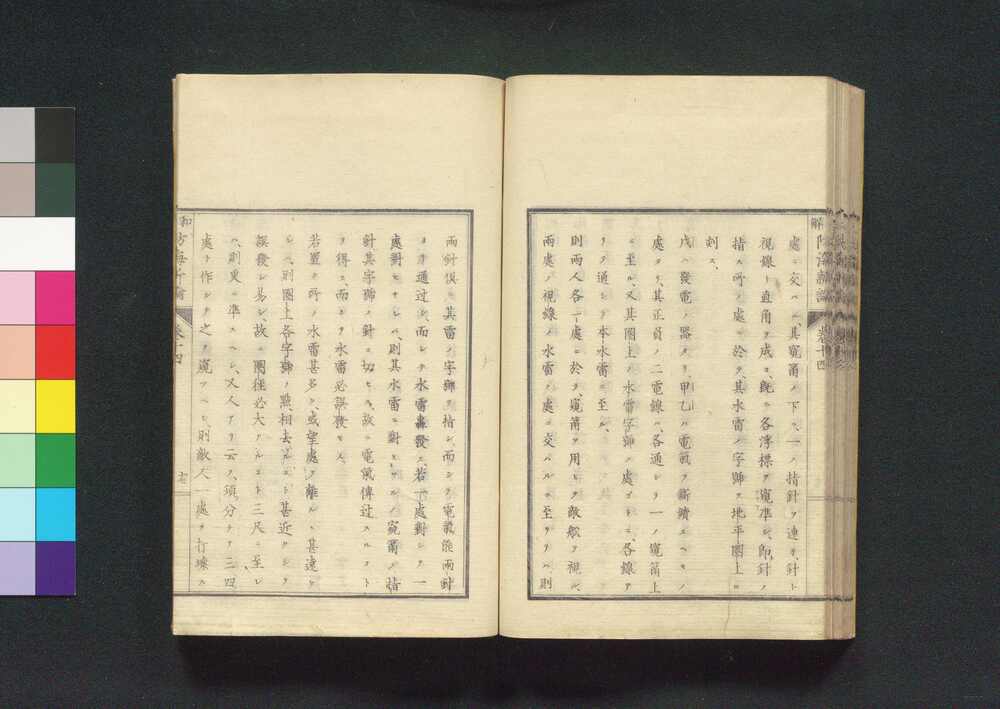 處ニ交ハル、其窺筩ノ下ニ、一ノ指針ヲ連子、針ト
視線ト直角ヲ成ス、既ニ各浮標ヲ窺準シ、即針ノ
指ス所ノ處ニ於テ、其水雷ノ字號ヲ地平圈上ニ
刻ス、
戊ハ發電ノ器タリ、甲乙ハ電氣ヲ斷續スヘキノ
處タリ、其正員ノ二電線ハ、各通シテ一ノ窺筩上
ニ至ル、又其圈上ノ水雷字號ノ處ゴトニ、各線ヲ
リヲ通シテ本水雷ニ至ル、
則兩人各一處ニ於テ、窺筩ヲ用ヒテ敵舩ヲ視ル、
兩處ノ視線ノ水雷ノ處ニ交ハルニ至リテハ、則
兩針俱ニ其雷ノ字號ヲ指シ、而シテ電氣能兩針
ヲ通過シ、而シテ水雷轟發ス、若一處對シテ一
處對セサレハ、則其水雷ニ對セサルノ窺筩ノ指
針其字號ノ針ニ切セス、故ニ電氣傳过スルヿヲ
ヲ得ス、而シテ水雷必
若置ク所ノ水雷甚多ク、或望處ヲ離ルヽ甚遠ケ
レハ則圈上各字號ノ點、相去ルコト甚近クシテ
誤發シ易シ、故ニ圈徑必大ナルコト三尺ニ至レ
ハ、則更ニ準スヘシ、又人アリ云フ、須分チテ三四
處ト作シテ之ヲ窺フヘシ、則敵人一處ヲ打壞ス
卷十四